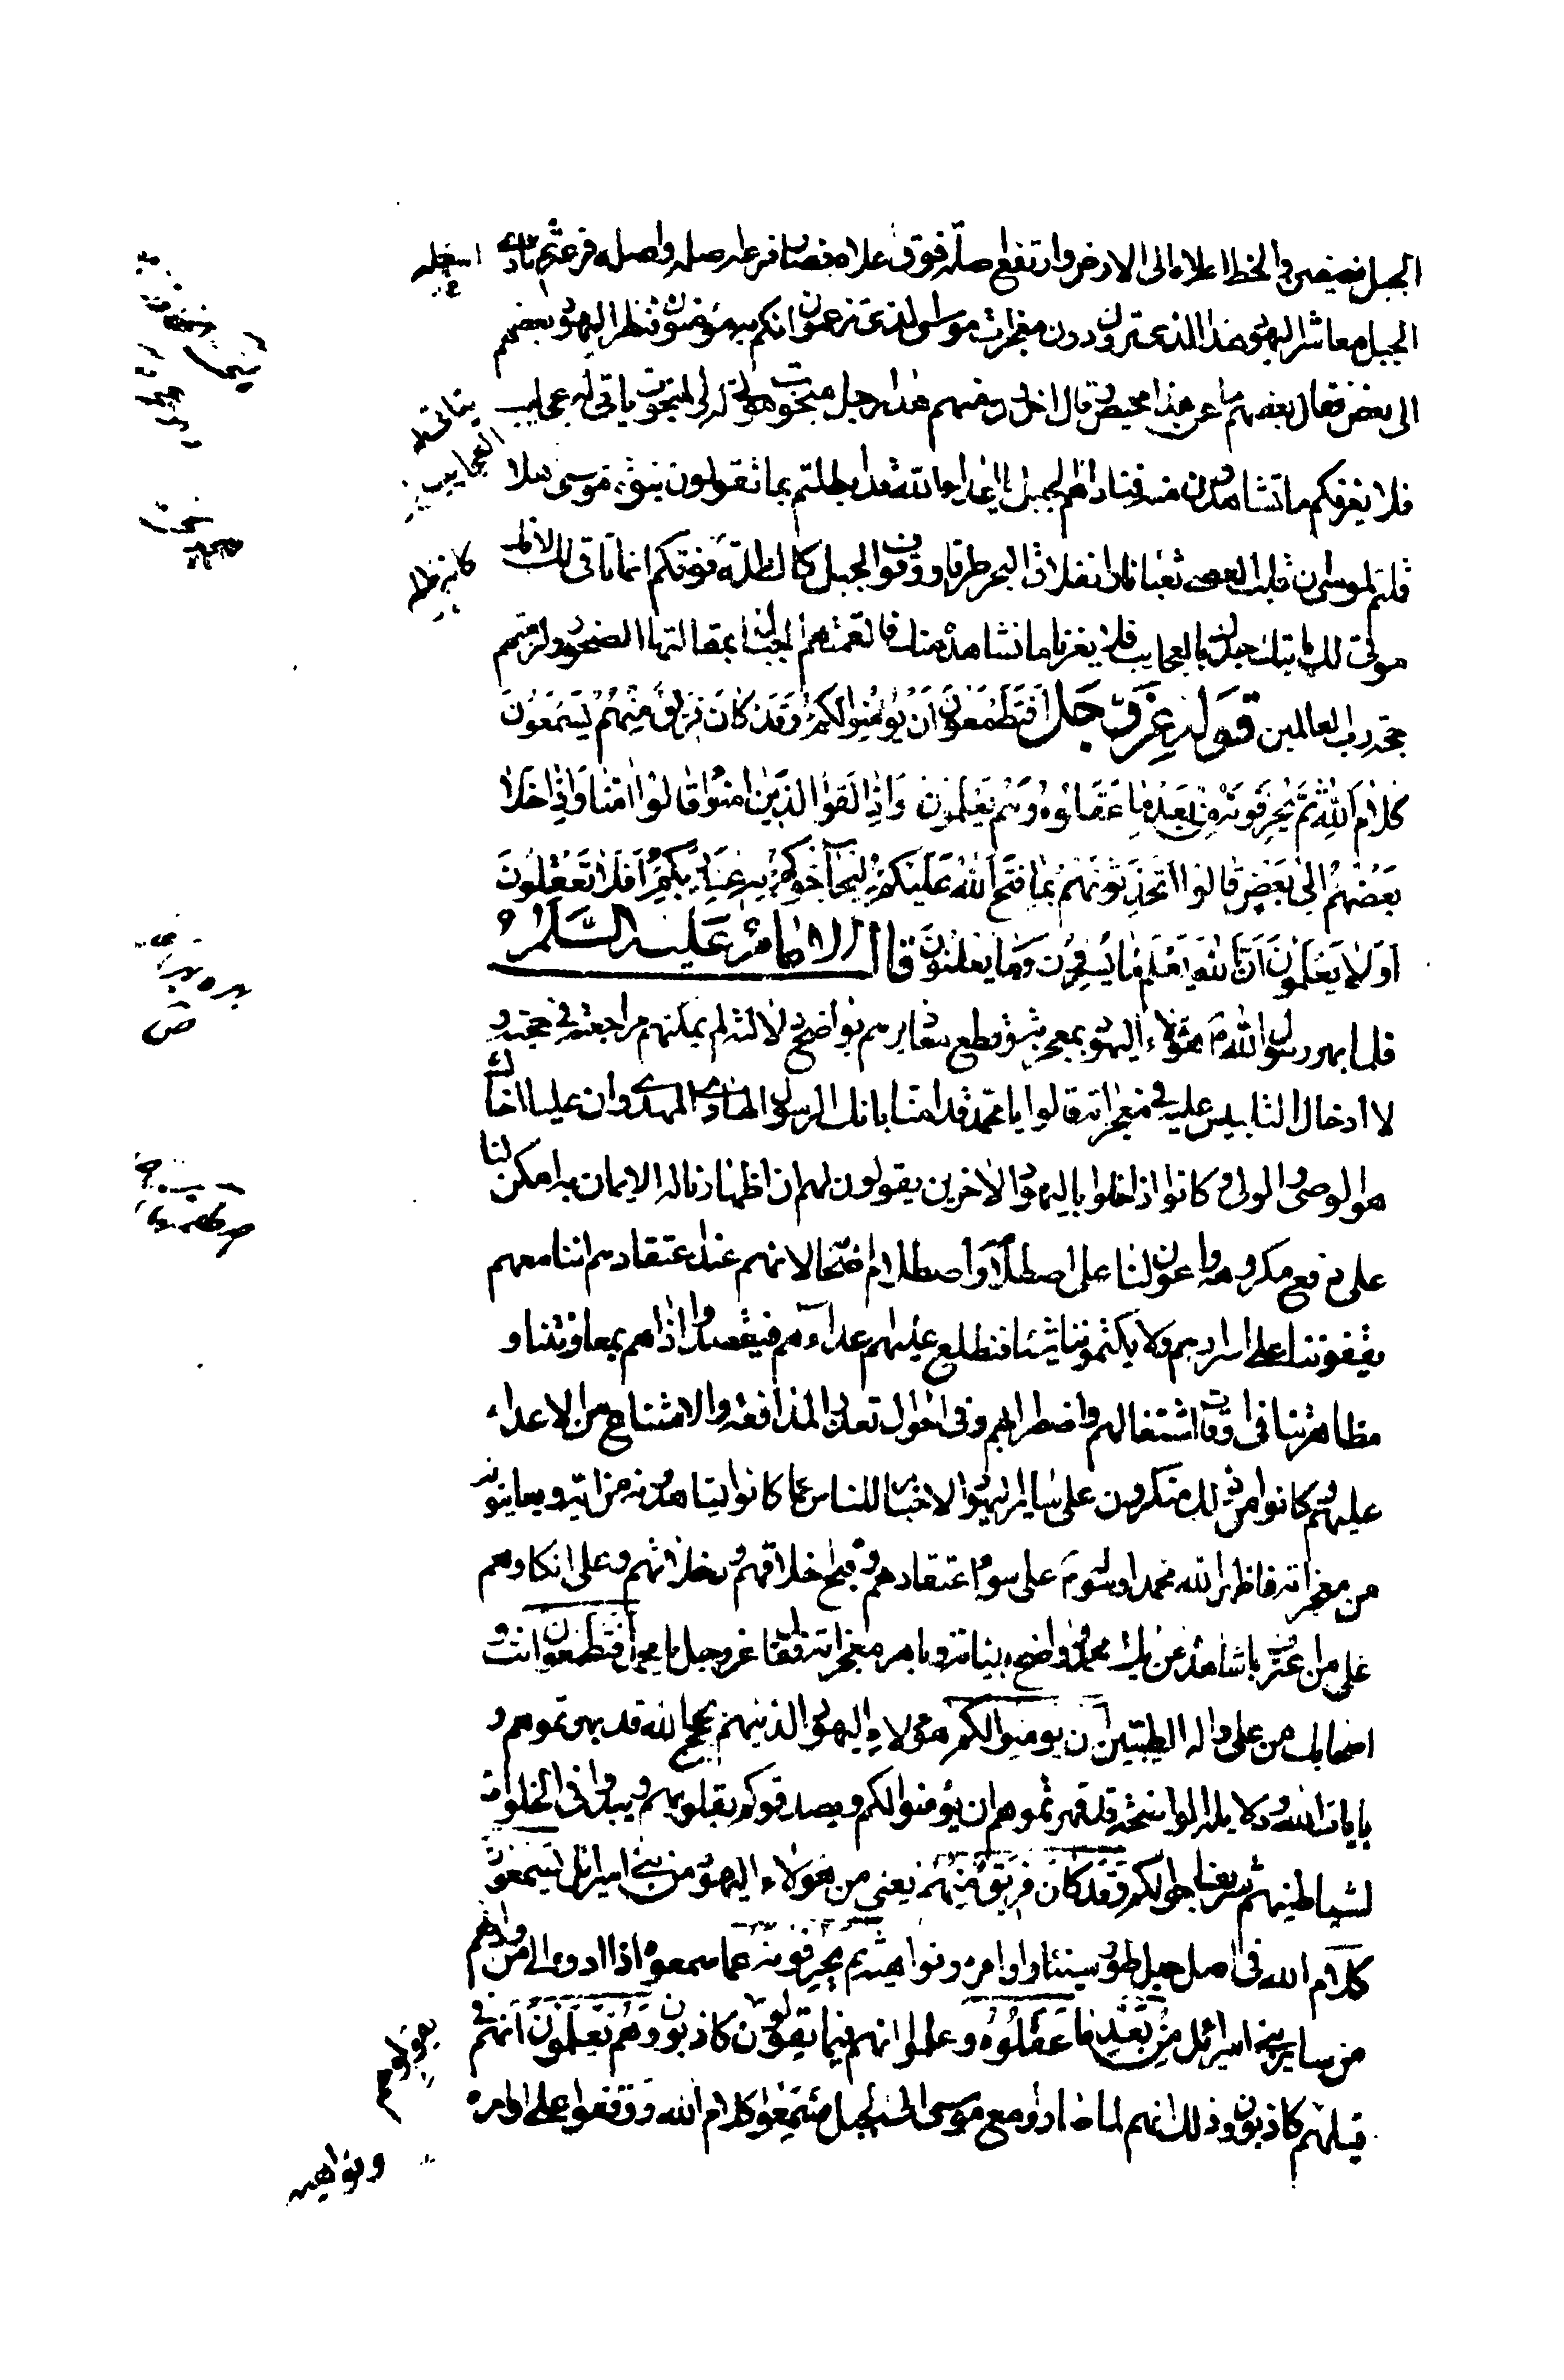 الجبل نصفين فانحط اعلاه الى الارض وارتفع اصله فوق علاه فصار فرعه اصله واصله فرعه ثم نادى
الجبل معاشر اليهود هذا الذى ترون دون معجزات موسى الذى تزعمون انكم به مؤمنون فنظر اليهود بعضهم
الى بعض فقال بعضهم ما عن هذا محيص وقال اخرون منهم هذا رجل مبخوت مؤتى له والمبخوت ياتى له عجايب
فلا يغرنكم ما تشاهدون منه فناداهم الجبل يا اعداء الله قد ابطلتم بما تقولون نبوة موسى هلا
قلتم لموسى ان قلب العصا ثعبانا وانفلاق البحر طرقا ووقوف الجبل كالظلة فوقكم انما تاتى لك لانك
مؤتى لك ياتيك جدك بالعجايب فلا يغرنا ما نشاهده منك فالقمتهم الجبال بمقالتها الصخور ولزمتهم
حجة رب العالمين قوله عز وجل أفتطمعون أن يؤمنوا لكم وقد كان فريق منهم يسمعون
كلام الله ثم يحرفونه من بعد ما عقلوه وهم يعلمون واذا لقوا الذين امنوا قالوا امنا واذا خلا
بعضهم الى بعض قالوا اتحدثونهم بما فتح الله عليكم ليحاجوكم به عند ربكم افلا تعقلون
اولا يعلمون ان الله يعلم ما يسرون وما يعلنون قال الامام عليه السلام
فلما بهر رسول الله ص هؤلاء اليهود بمعجزته وقطع معاذيرهم بواضح دلالته لم يمكنهم مراجعته فى حجته و
لا ادخال التلبيس عليه فى معجزاته قالوا يا محمد قد امنا بانك الرسول الهادى المهدى وان عليا اخاك
هو الوصى والولى وكانوا اذا خلوا باليهود الاخرين يقولون لهم ان اظهارنا له الايمان به امكن لنا
على دفع مكروهه واعون لنا على اصطلامه واصطلام اصحابه لانهم عند اعتقادهم اننا معهم
يقفوننا على اسرارهم ولا يكتموننا شيئا فنطلع عليهم اعداءهم فيقصدون اذاهم بمعاونتنا و
مظاهرتنا فى اوقات اشتغالهم واضطرابهم وفى احوال تعذر المدافعة والامتناع من الاعداء
عليهم وكانوا مع ذلك منكرون على ساير اليهود الاخبار للناس عما كانوا يشاهدونه من اياته ويعاينونه
من معجزاته فاظهر الله محمدا رسوله ص على سوء اعتقادهم وقبح اخلاقهم ودخلاتهم وعلى انكارهم
على من اعترف بما شاهده من ايات محمد وواضح بيناته وباهر معجزاته فقال عز وجل يا محمد أفتطمعون انت و
اصحابك من على واله الطيبين أن يؤمنوا لكم هؤلاء اليهود الذين هم بحجج الله قد بهرتموهم و
بايات الله ودلايله الواضحة قد قهرتموهم ان يؤمنوا لكم ويصدقوكم بقلوبهم ويبدوا فى الخلوات
لشياطينهم شريف احوالكم وقد كان فريق منهم يعنى من هؤلاء اليهود من بنى اسرائيل يسمعون
كلام الله فى اصل جبل طور سيناء واوامره ونواهيه ثم يحرفونه عما سمعوه اذا ادوه الى من وراءهم
من ساير بنى اسرائيل من بعد ما عقلوه وعلموا انهم فيما يقولون كاذبون وهم يعلمون انهم فى
قيلهم كاذبون وذلك انهم لما صاروا مع موسى الى الجبل فسمعوا كلام الله ووقفوا على اوامره
ونواهيه